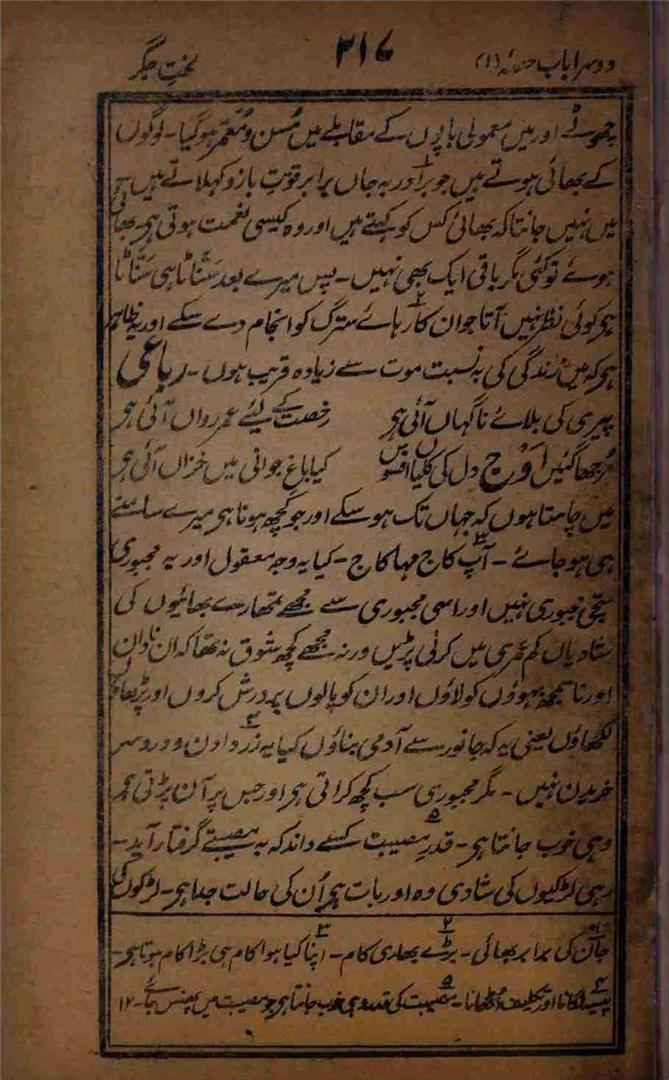 دوسرا باب حصہ (۱) ۲۱۶ لخت جگر
چھوٹے اور میں معمولی باپوں کے مقابلے میں مُسن و مُعمّر ہو گیا۔ لوگوں
کے بھائی ہوتے ہیں جو برادر بہ جاں برابر قوتِ بازو کہلاتے ہیں
میں نہیں جانتا کہ بھائی کس کو کہتے ہیں اور وہ کیسی نعمت ہوتی ہی۔ بھائی
ہوئے تو کئی مگر باقی ایک بھی نہیں۔ پس میرے بعد سَنّاٹا ہی سَنّاٹا
ہی کوئی نظر نہیں آتا جو ان کارہائے سترگ کو انجام دے سکے اور یہ ظاہر
ہی کہ میں زندگی کی بہ نسبت موت سے زیادہ قریب ہوں۔ رباعی
پیری کی بلائے ناگہاں آئی ہی رخصت کے لیئے عمر رواں آئی ہی
مُرجھا گئیں اَوج دل کی کلیاں افسوس کیا باغِ جوانی میں خزاں آئی ہی
میں چاہتا ہوں کہ جہاں تک ہو سکے اور جو کچھ ہونا ہی میرے سامنے
ہی ہو جائے۔ آپ کاج مہا کاج۔ کیا یہ وجہ معقول اور یہ مجبوری
سچّی مجبوری نہیں اور اسی مجبوری سے مجھے تمھارے بھائیوں کی
شادیاں کم عمری میں کرنی پڑیں ورنہ مجھے کچھ شوق نہ تھا کہ ان نادان
اور ناسمجھ بہوؤں کو لاؤں اور ان کو پالوں پرورش کروں اور پڑھاؤں
لکھاؤں یعنی یہ کہ جانور سے آدمی بناؤں کیا یہ زر دادن و دردسر
خریدن نہیں۔ مگر مجبوری سب کچھ کراتی ہی اور جس پر آن پڑتی ہی
وہی خوب جانتا ہی۔ قدر مصیبت کسے داند کہ بہ مصیبتے گرفتار آید۔
رہی لڑکیوں کی شادی وہ اور بات ہی اُن کی حالت جدا ہی۔ لڑکوں کی
۱ جان کی برابر بھائی۔ ۲ بڑے بھاری کام۔ ۳ اپنا کیا ہوا کام ہی بڑا کام ہوتا ہی۔
۴ پیسہ لگانا اور تکلیف اٹھانا۔ ۵ مصیبت کی قدر وہی خوب جانتا ہی جو مصیبت میں پھنس جائے۔ ۱۲